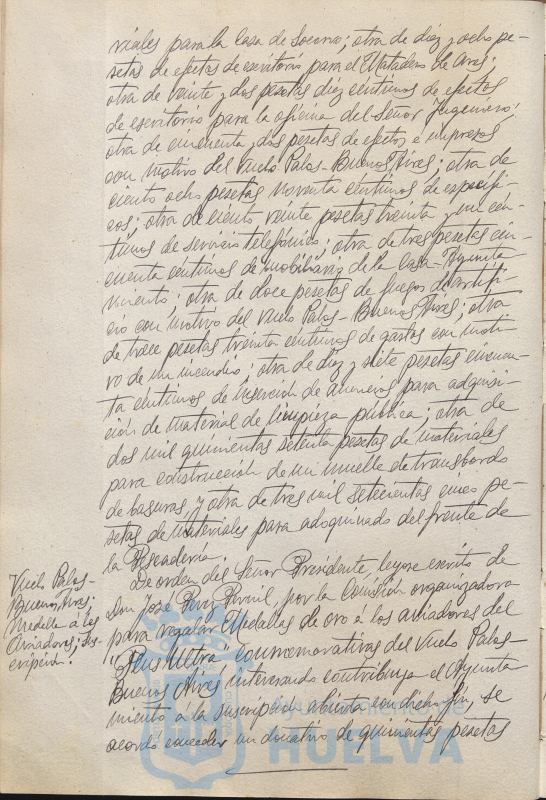 riales para la Casa de Socorro; otra de diez y ocho pe-
setas de efectos de escritorio para el Matadero de Aves;
otra de veinte y dos pesetas diez centimos de efectos
de escritorio para la oficina del Señor Ingeniero;
otra de cincuenta y dos pesetas de efectos e impresos
con motivo del vuelo Palos-Buenos Aires; otra de
ciento ocho pesetas noventa centimos de específi-
cos; otra de ciento veinte pesetas treinta y un cen-
timos de servicio telefónico; otra de tres pesetas cin-
cuenta centimos de mobiliario de la Casa-Ayunta-
miento; otra de doce pesetas de fuegos de artifi-
cio con motivo del vuelo Palos-Buenos Aires; otra
de trece pesetas treinta centimos de gastos con moti-
vo de un incendio; otra de diez y siete pesetas cincuen-
ta centimos de inserción de anuncios para adquisi-
ción de material de limpieza pública; otra de
dos mil quinientas setenta pesetas de materiales
para construcción de un muelle de transbordo
de basuras y otra de tres mil setecientas once pe-
setas de materiales para adoquinado del frente de
la Pescadería.
Vuelo Palos-
Buenos Aires:
Medalla a los
Aviadores; Sus-
cripción.
De orden del Señor Presidente, leyose escrito de
Don José, por la Comisión organizadora
para regalar Medallas de oro á los aviadores del
"Plus Ultra" conmemorativas del Vuelo Palos-
Buenos Aires interesando contribuya el Ayunta-
miento á la suscripción abierta con dicho fin, se
acordó conceder un donativo de quinientas pesetas
HUELVA